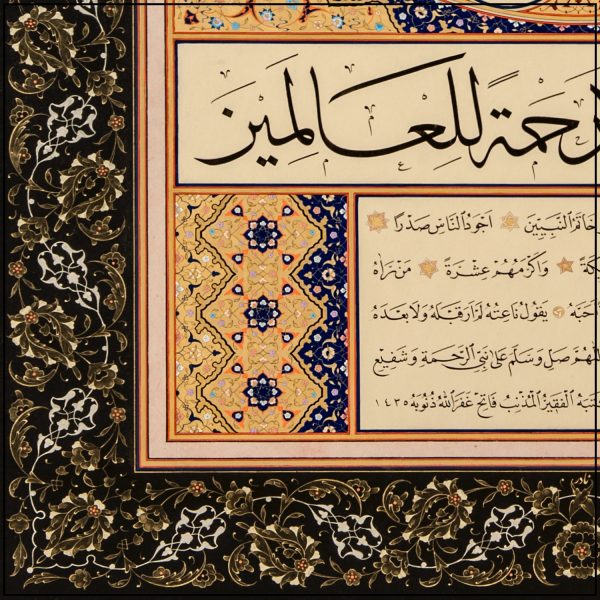 رَحْمَةً لِلْعَالَمِينَ
خَاتَمُ النَّبِيِّينَ اَجْوَدُ النَّاسِ صَدْرًا
وَاَكْرَمُهُمْ عِشْرَةً مَنْ رَاٰهُ
اَحَبَّهُ يَقُولُ نَاعِتُهُ لَمْ اَرَ قَبْلَهُ وَلَا بَعْدَهُ
اللّٰهُمَّ صَلِّ وَسَلِّمْ عَلٰى نَبِيِّ الرَّحْمَةِ وَشَفِيعِ
كَتَبَهُ الْفَقِيرُ الْمُذْنِبُ فَاتِحُ غَفَرَ اللّٰهُ ذُنُوبَهُ ١٤٣٥